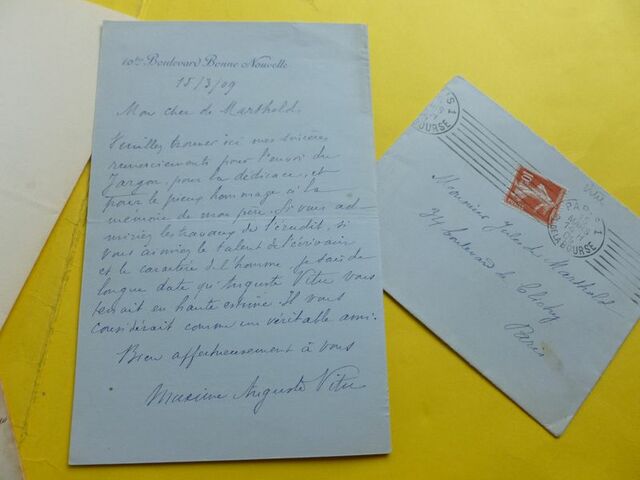 10bis Boulevard Bonne Nouvelle
15/3/09
Mon cher de Marthold
Veuillez trouver ici mes sincères
remerciements pour l'envoi du
Jargon, pour la dédicace, et
pour le pieux hommage à la
mémoire de mon père. Si vous ad-
miriez les travaux de l'érudit, si
vous aimiez le talent de l'écrivain
et le caractère de l'homme je sais de
longue date qu'Auguste Vitu vous
tenait en haute estime. Il vous
considérait comme un véritable ami.
Bien affectueusement à vous
Maxime Auguste Vitu
Monsieur Jules de Marthold
74 boulevard de Clichy
Paris
BOURSE
PARIS 1
DE LA BOURSE
10